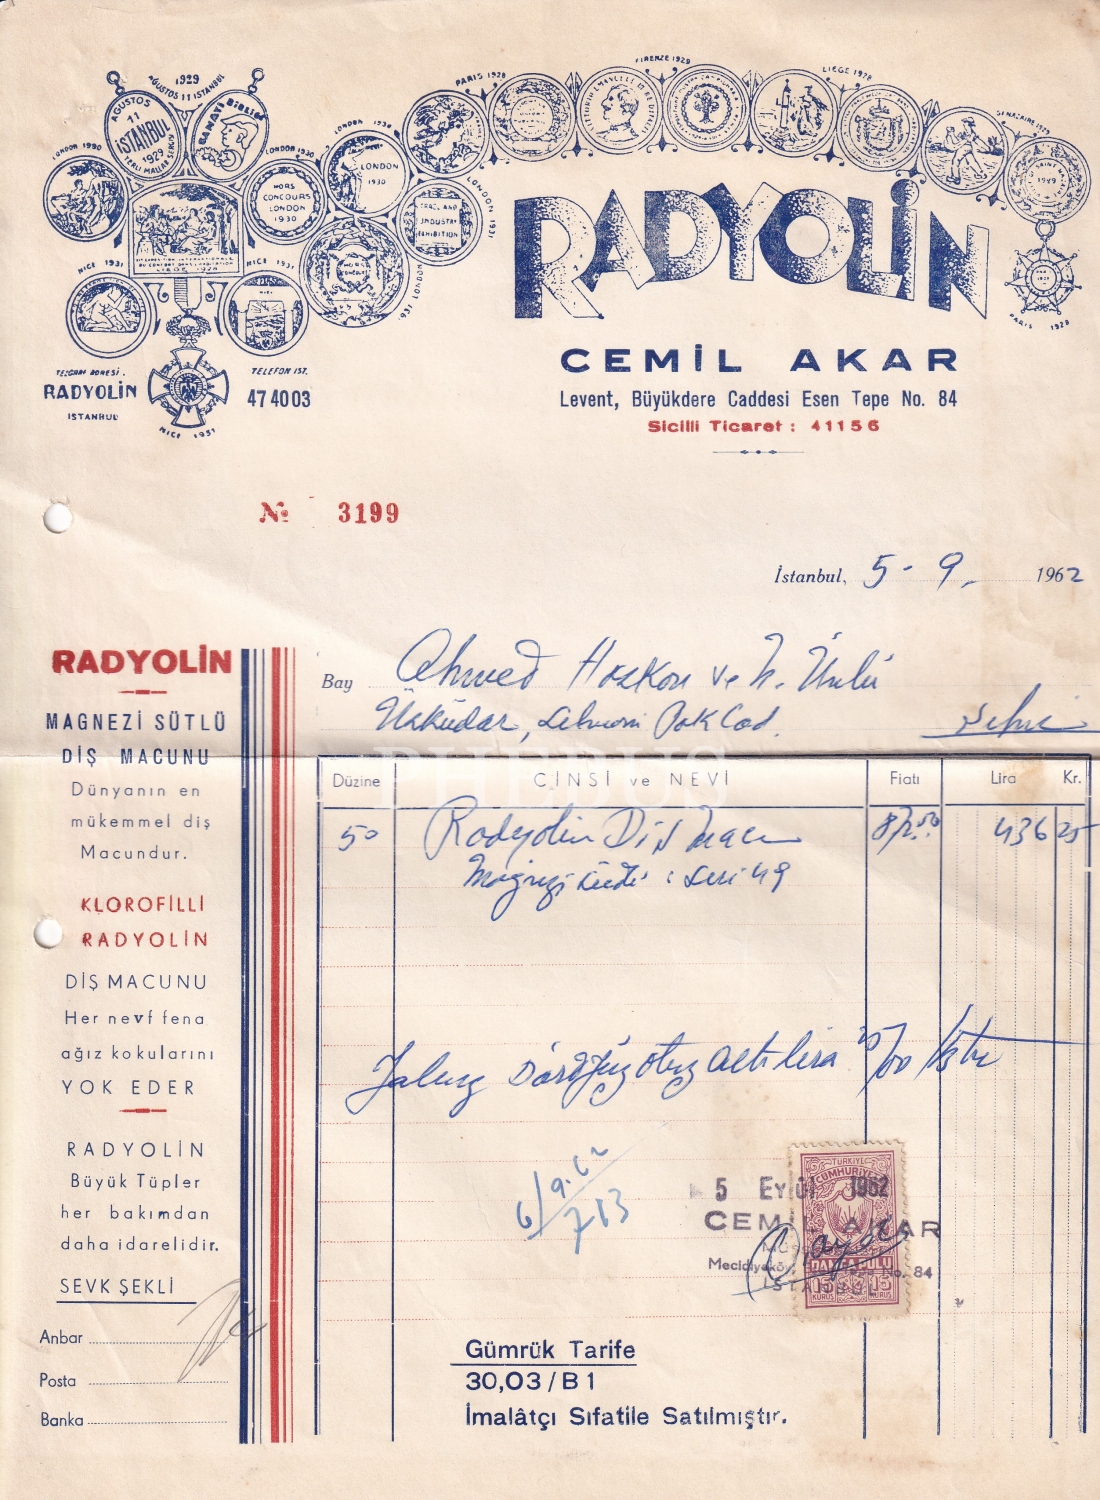 1929
AĞUSTOS 11 İSTANBUL
AĞUSTOS
11
İSTANBUL
1929
YERLİ MALLAR SERGİSİ
LONDON 1930
LONDON 1930
LONDON 1930
LONDON
1930
HORS
CONCOURS
LONDON
1930
PARIS 1928
FIRENZE 1929
LIEGE 1928
LONDON 1931
TRADE AND
INDUSTRY
EXHIBITION
LONDON 1931
LIEGE 1928
NICE 1931
NICE 1931
PARIS 1928
NICE 1931
RADYOLİN
TELGRAF ADRESİ.
RADYOLİN
İSTANBUL
TELEFON IST.
47 40 03
CEMİL AKAR
Levent, Büyükdere Caddesi Esen Tepe No. 84
Sicilli Ticaret : 41156
№ 3199
İstanbul, 5 - 9. 1962
Bay Ahmed Hozkan ve N. Ünlü
Üsküdar, Selmani Pak Cad. Şehri
RADYOLİN
MAGNEZİ SÜTLÜ
DİŞ MACUNU
Dünyanın en
mükemmel diş
Macundur.
KLOROFİLLİ
RADYOLİN
DİŞ MACUNU
Her nevf fena
ağız kokularını
YOK EDER
RADYOLİN
Büyük Tüpler
her bakımdan
daha idarelidir.
SEVK ŞEKLİ
Anbar
Posta
Banka
PHEBUS
Düzine CİNSİ ve NEVİ Fiatı Lira Kr.
50 Radyolin Diş Macu 872.50 436 25
Magnezi Sütlü : Seri 49
Yalnız Dörtyüzotuz altı lira 25/00
6/9.62
713
TÜRKİYE
CUMHURİYETİ
DAMGA PULU
15 15
KURUŞ KURUŞ
5 Eylül 1962
CEMİL AKAR
Mecidiyeköy, No. 84
İSTANBUL
Gümrük Tarife
30,03/B1
İmalâtçı Sıfatile Satılmıştır.